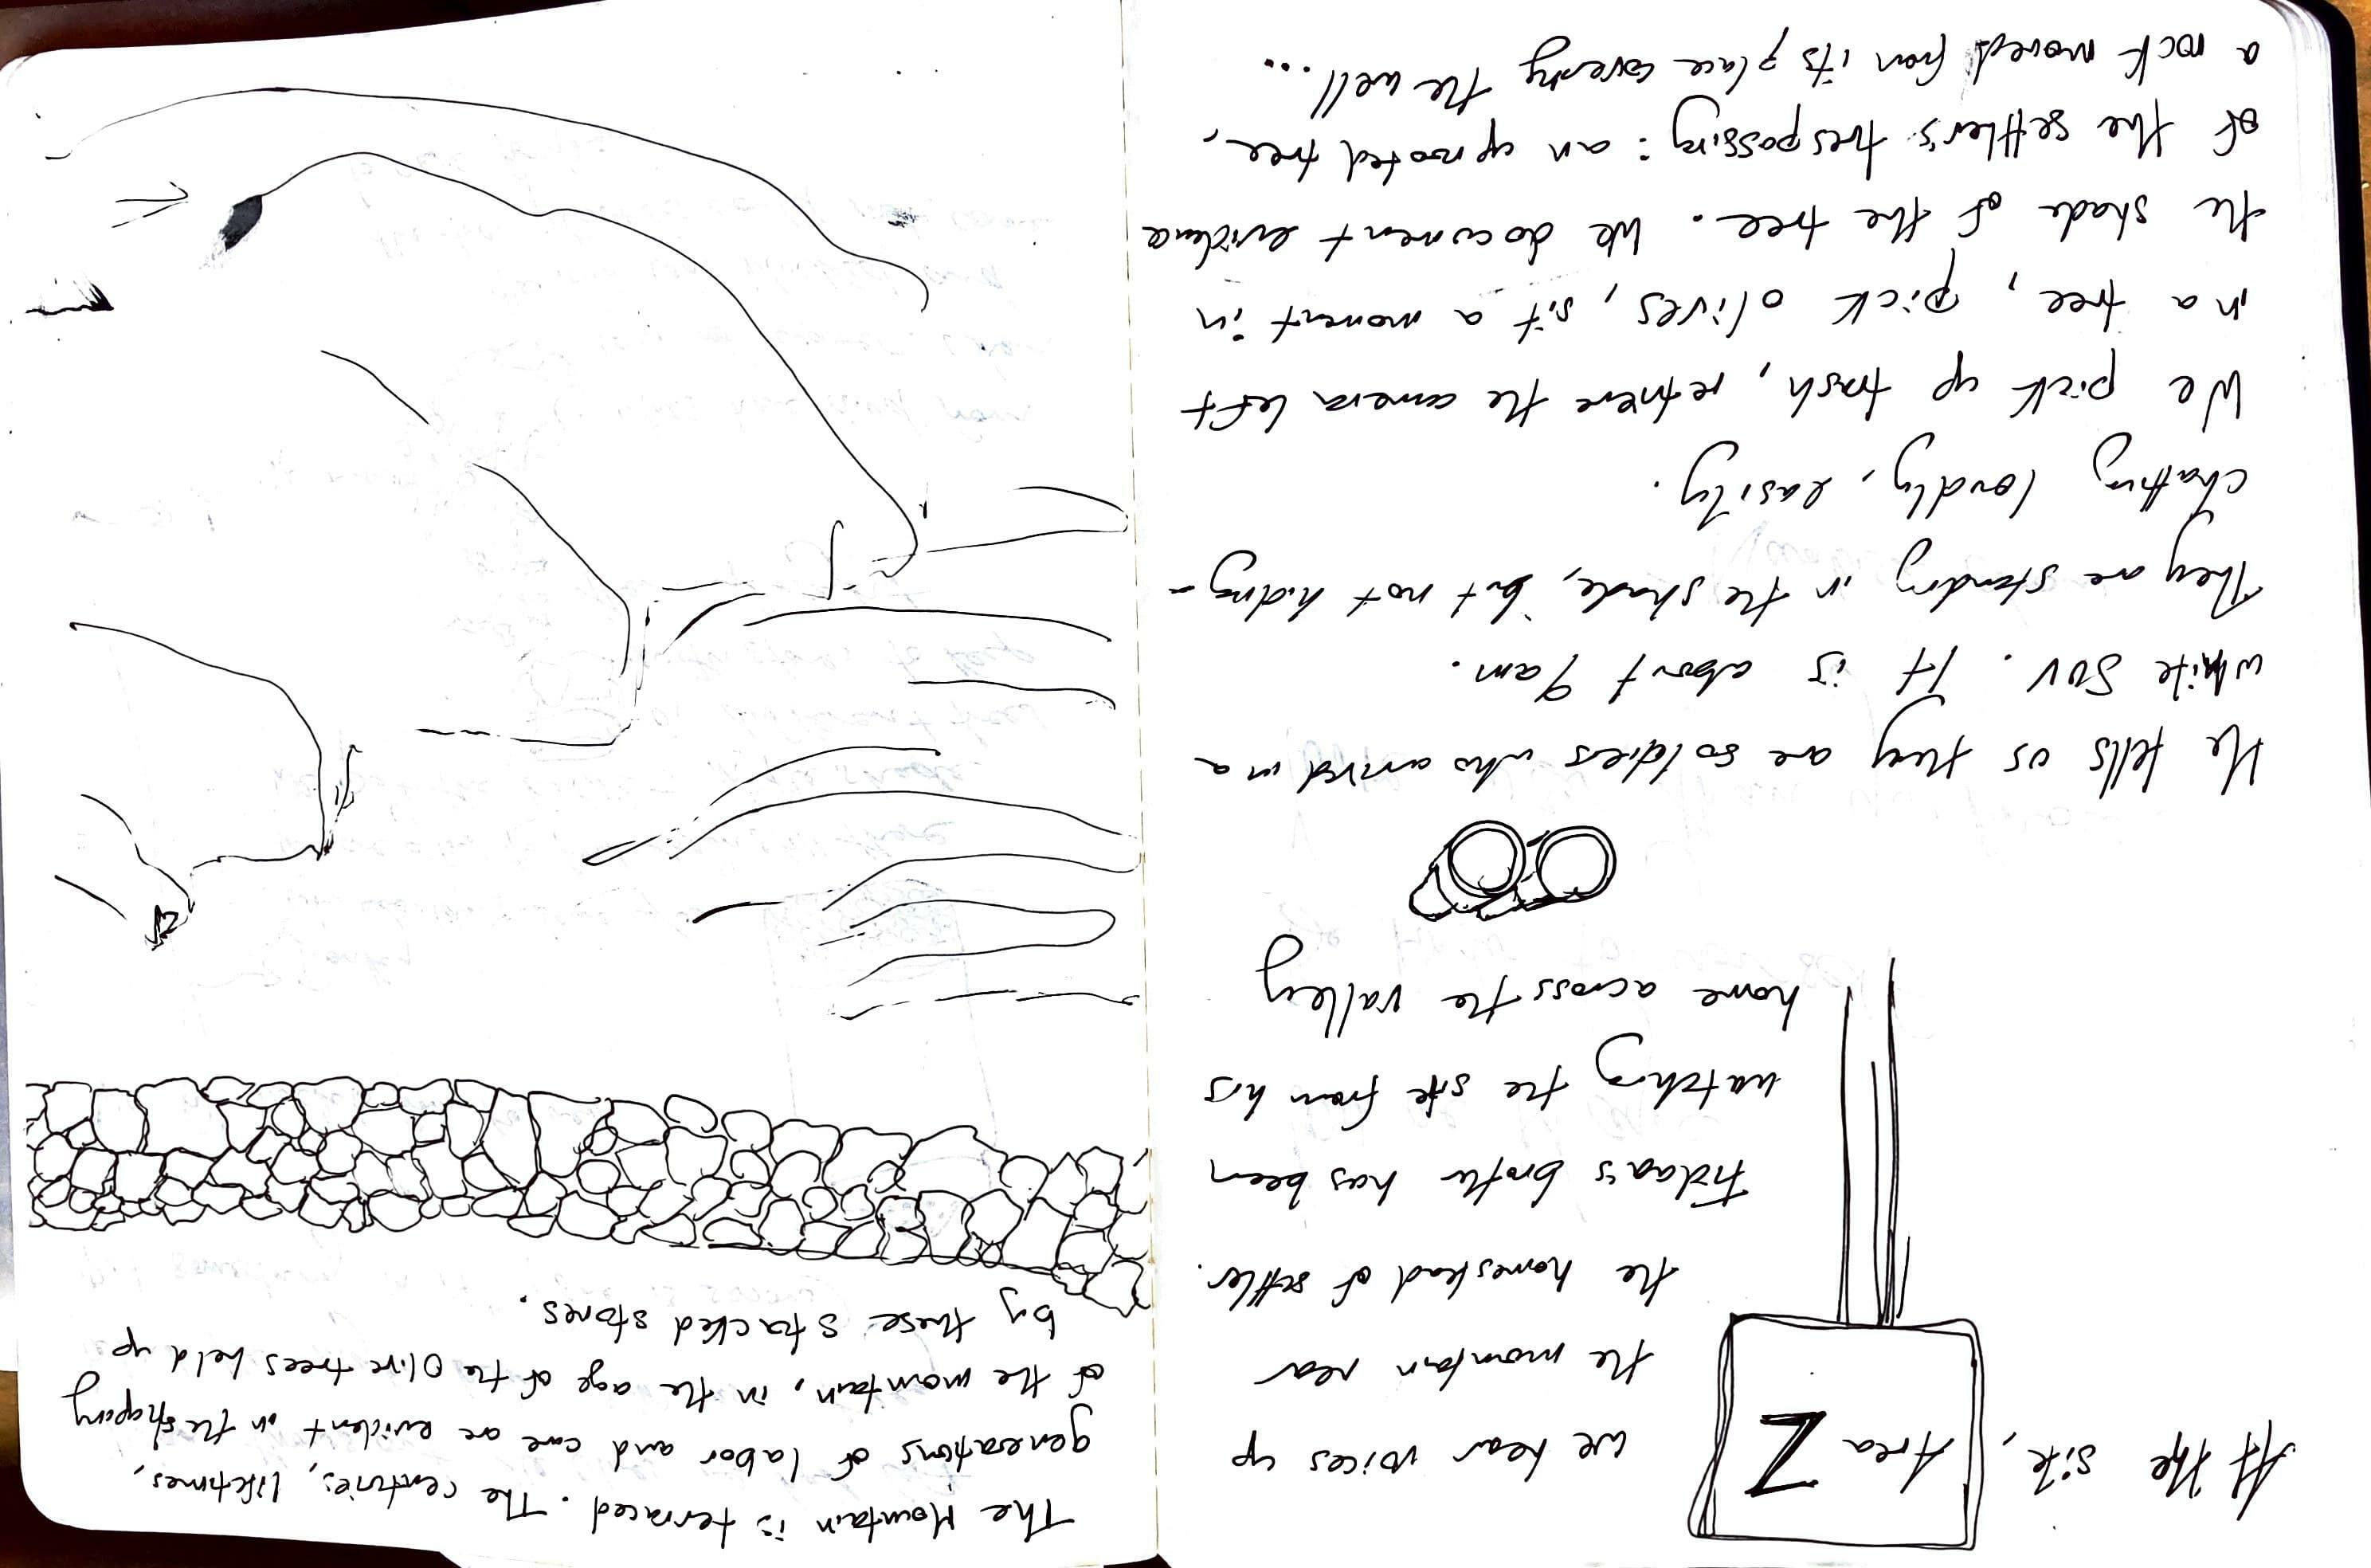 At the site, Area Z we hear voices up
the mountain near
the homestead of settler.
Fidaa's brother has been
watching the site from his
home across the valley
He tells us they are soldiers who arrived in a
white SUV. It is about 9am.
They are standing in the shade, but not hiding-
chatting loudly, easily.
We pick up trash, retrieve the camera left
in a tree, pick olives, sit a moment in
the shade of the tree. We document evidence
of the settler's trespassing: an uprooted tree,
a rock moved from its place covering the well...
The Mountain is terraced. The centuries, lifetimes,
generations of labor and care are evident in the shaping
of the mountain, in the age of the Olive trees held up
by these stacked stones.